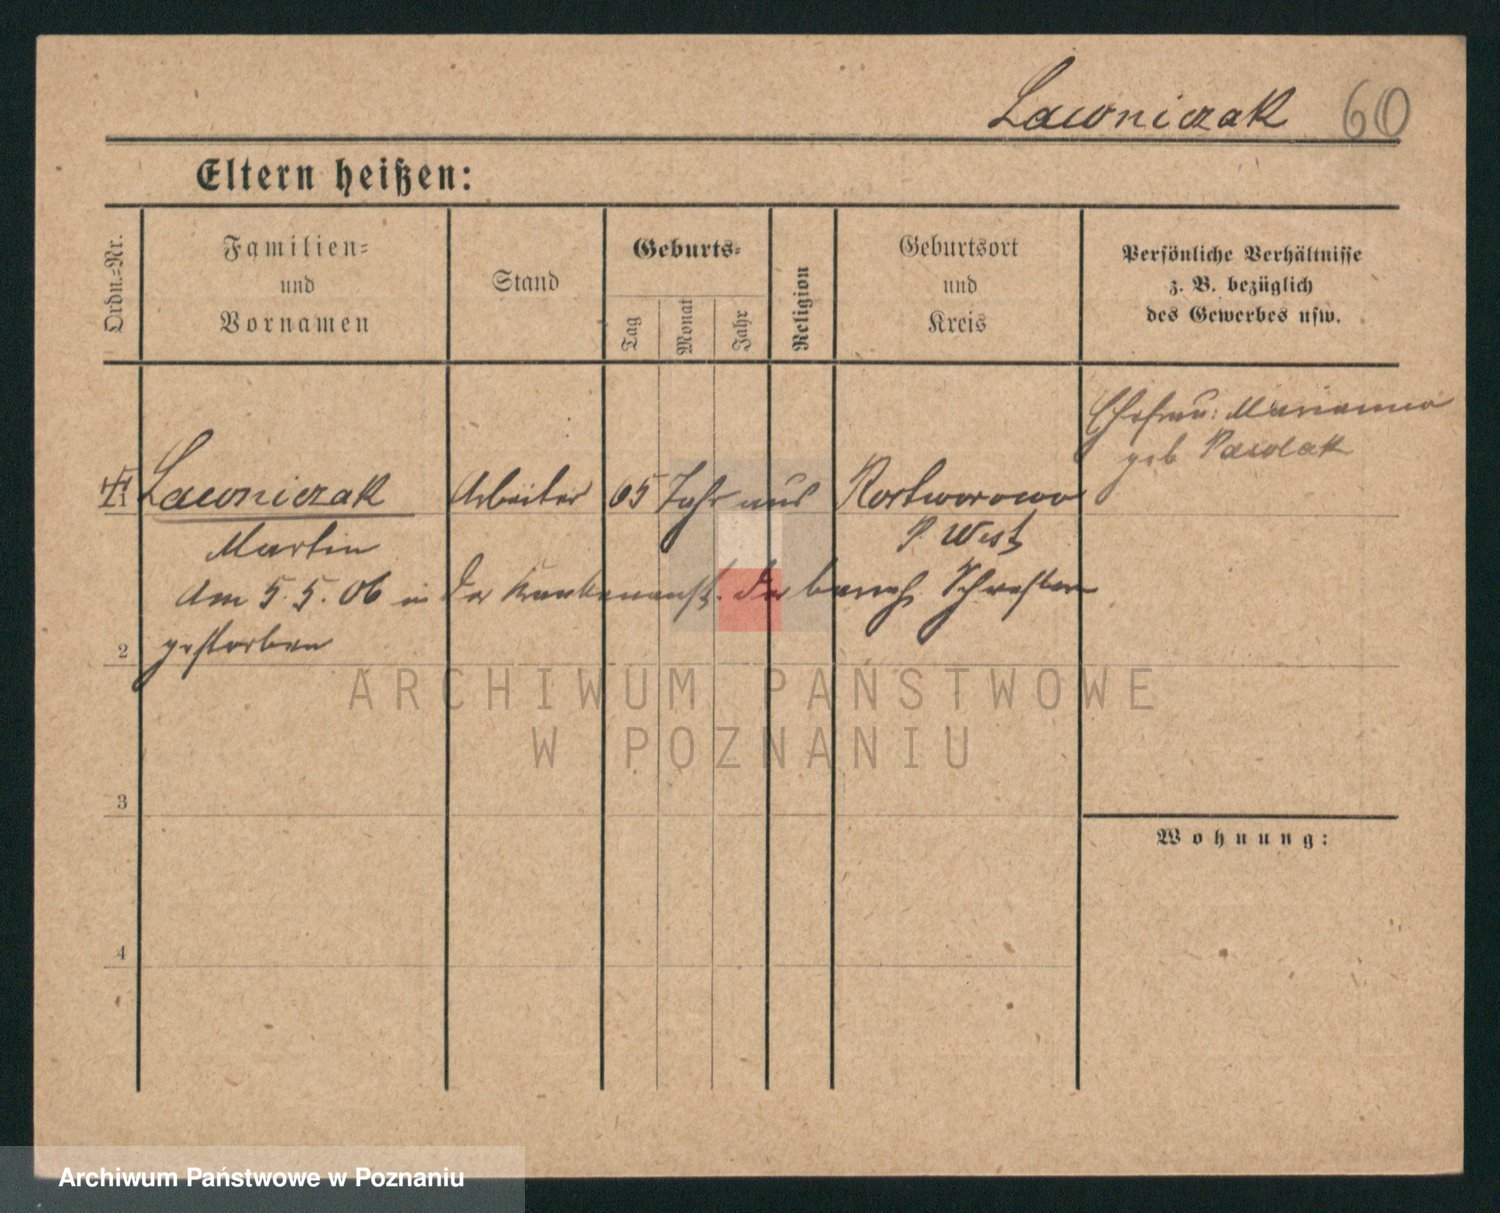 Lawniczak 60
Eltern heißen:
Ordn.-Nr.
Familien-
und
Vornamen
Stand
Geburts-
Tag
Monat
Jahr
Religion
Geburtsort
und
Kreis
Persönliche Verhältnisse
z. B. bezüglich
des Gewerbes usw.
Ehefrau: Marianna
geb Pawlak
Lawniczak Arbeiter 65 Jahr aus Rostworowo
Martin P West
Am 5.5.06 in der Krankenanst. der barmh Schwestern
2 gestorben
ARCHIWUM PAŃSTWOWE
W POZNANIU
3
Wohnung:
4
Archiwum Państwowe w Poznaniu